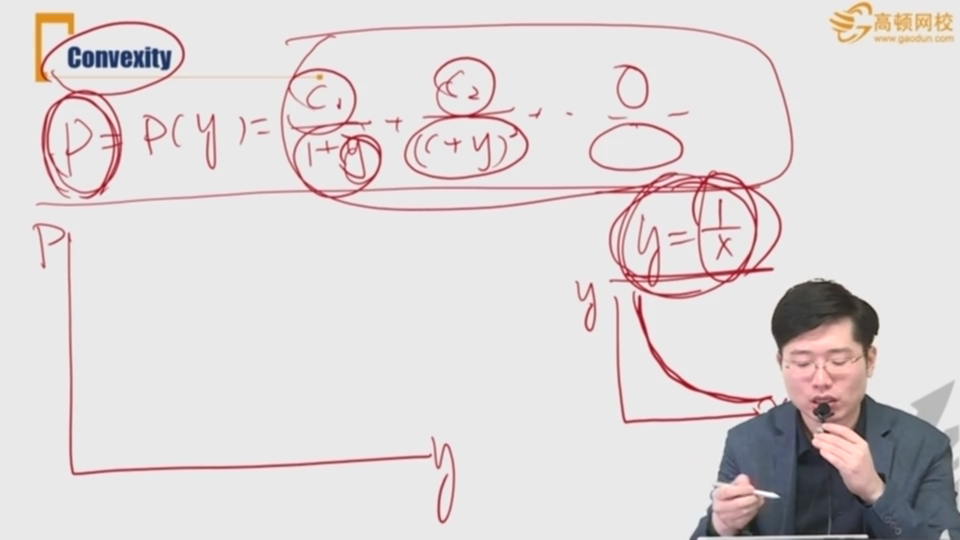 Convexity
高顿网校
www.gaodun.com
P = P(y) = C₁/(1+y) + C₂/(1+y)² + · ·
y = 1/x
P
y
y